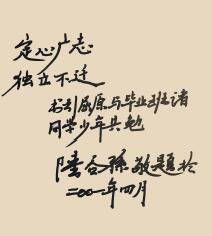 定心广志
独立不迁
书引屈原与毕业班诸
同学少年共勉
陆谷孙敬题于
二〇〇一年四月